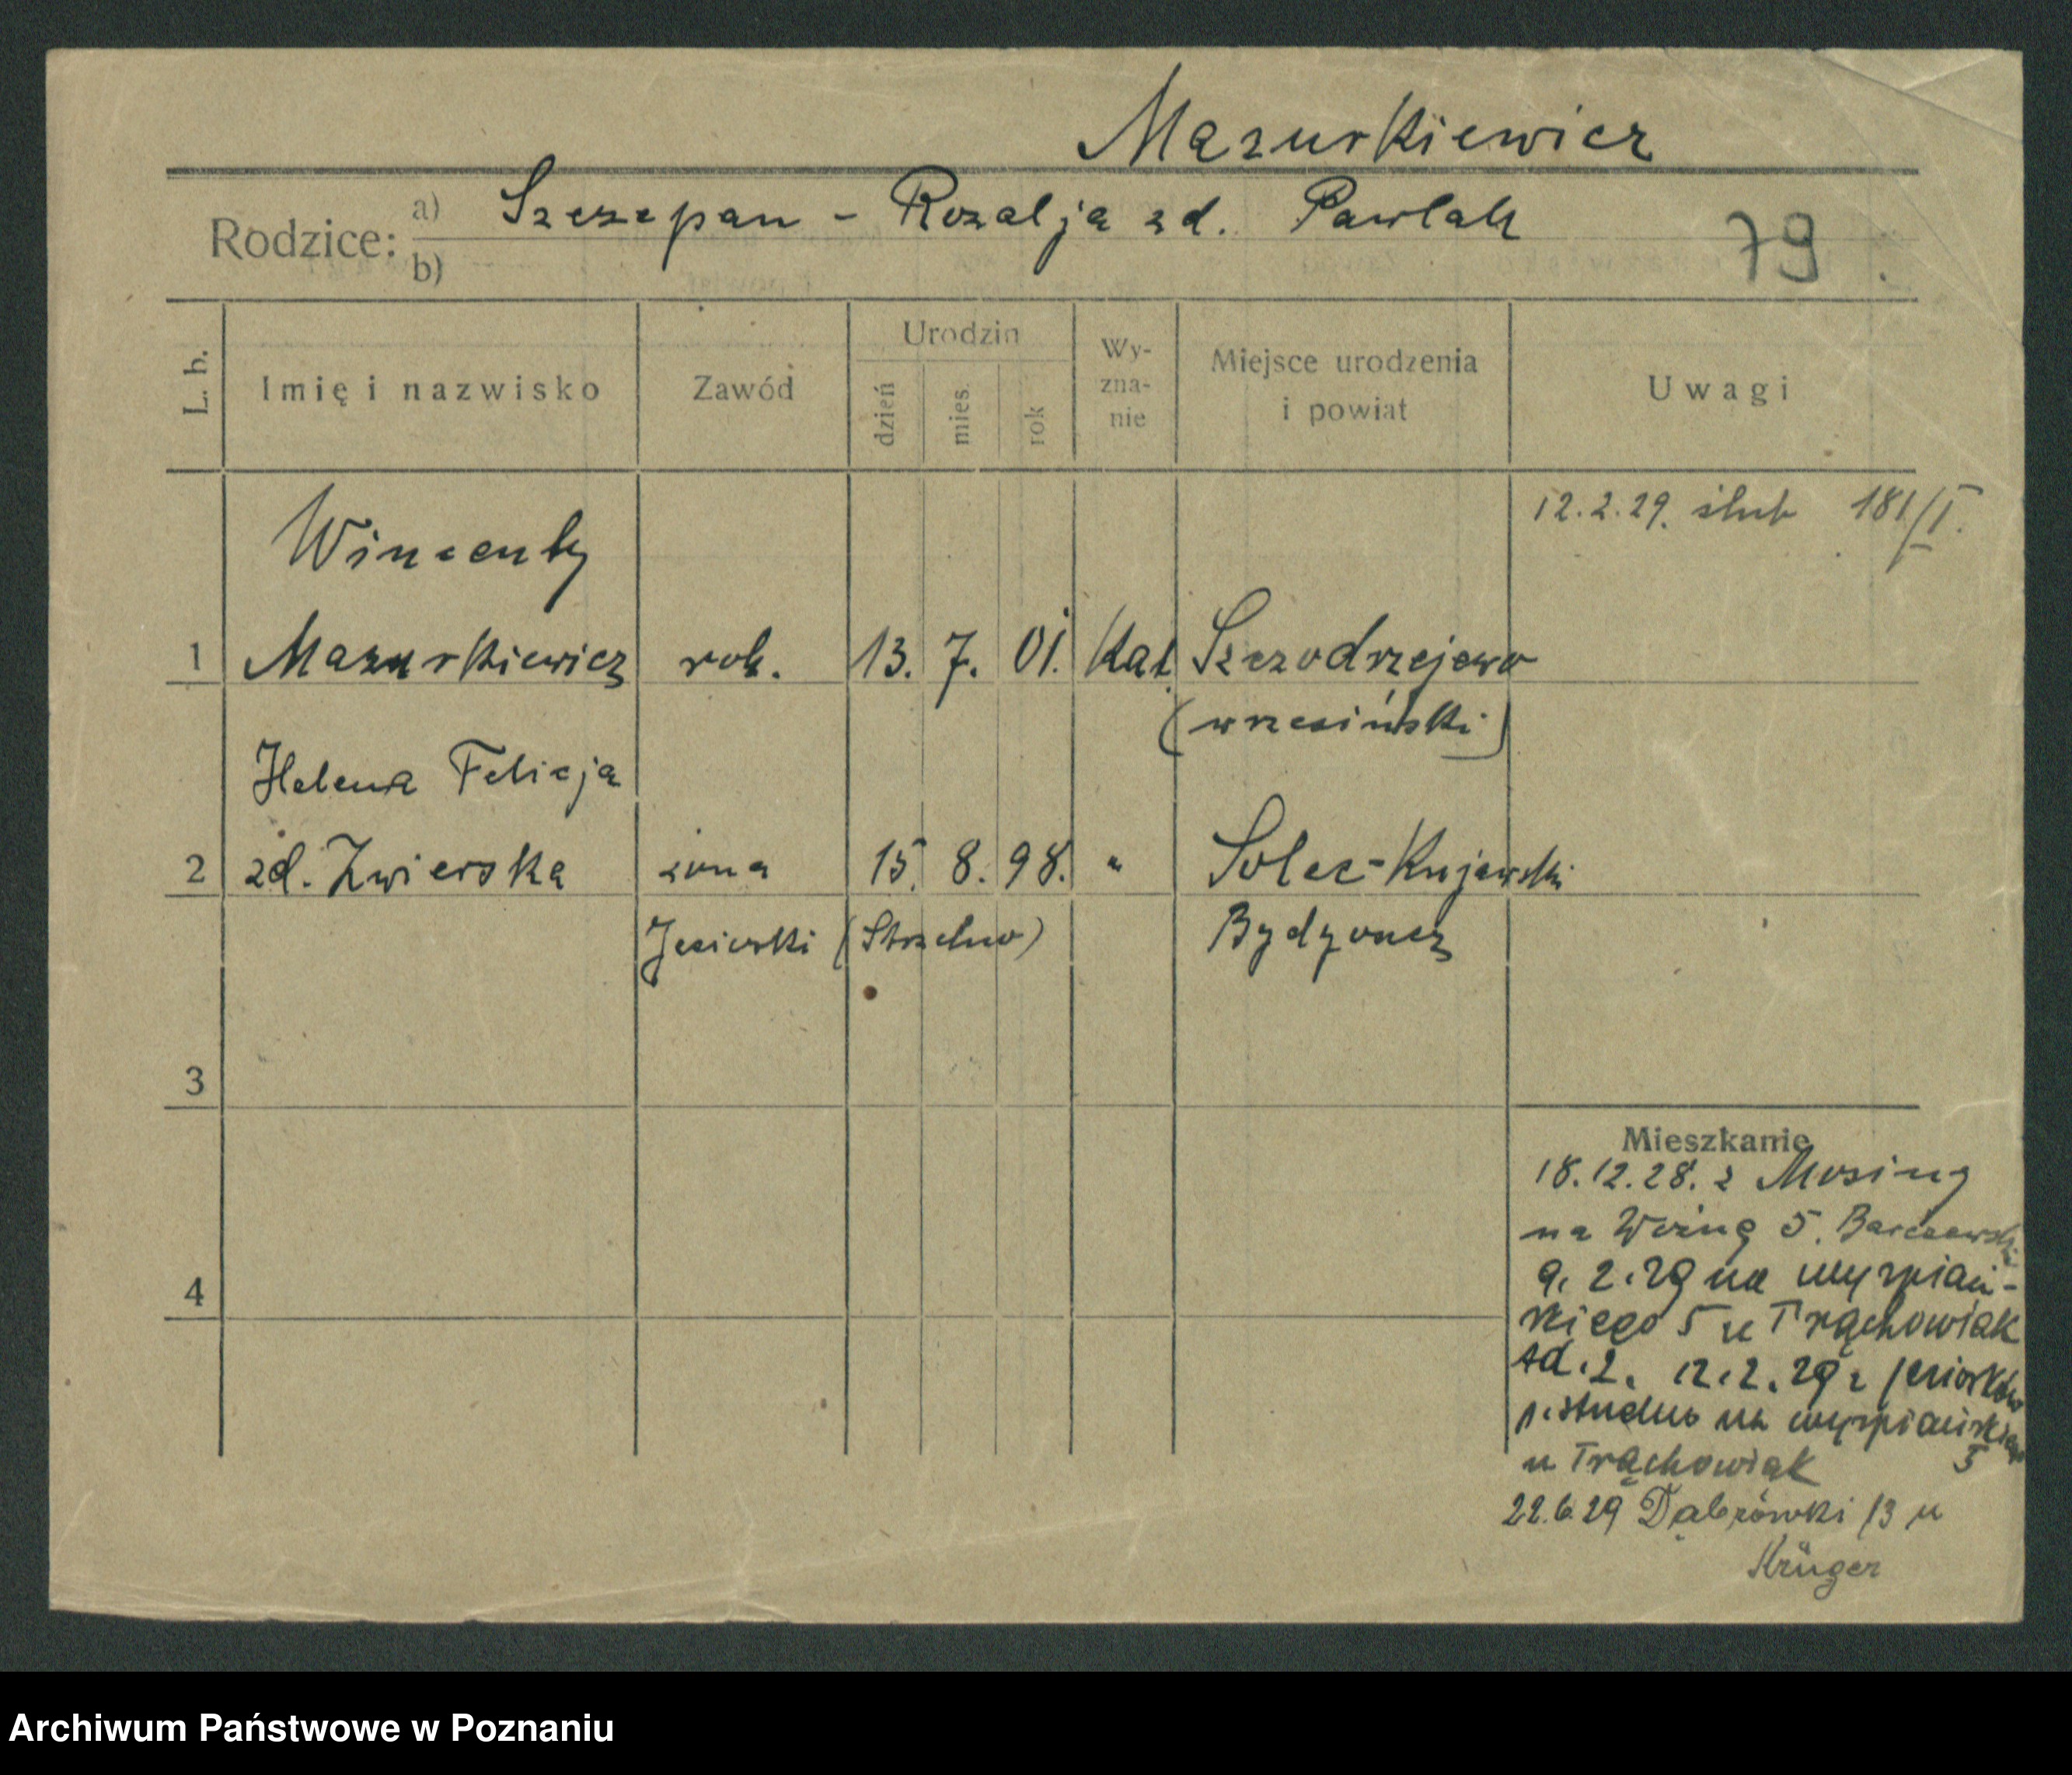 Mazurkiewicz
Rodzice: a) Szczepan - Rozalja zd. Pawlak
b)
79
L. b.
Imię i nazwisko
Zawód
Urodzin
dzień
mies.
rok
Wy-
zna-
nie
Miejsce urodzenia
i powiat
Uwagi
12.2.29. ślub 181/I.
Wincenty
1 Mazurkiewicz rob. 13. 7. 01. Kat. Szczodrzejewo
(wrzesiński)
Helena Felicja
2 zd. Zwierska żona 15. 8. 98. " Solec-Kujawski
Jeziorki (Strzelno) Bydgoszcz
3
Mieszkanie
18.12.28. z Mosiny
na Woźną 5. Barczewski
4
9.2.29 na Wyspiań-
skiego 5 u Trąchowiak
ad.2. 12.2.29 z
na Wyspiańskiego
u Trąchowiak 5
22.6.29 Dąbrówki 13 u
Krüger
Archiwum Państwowe w Poznaniu